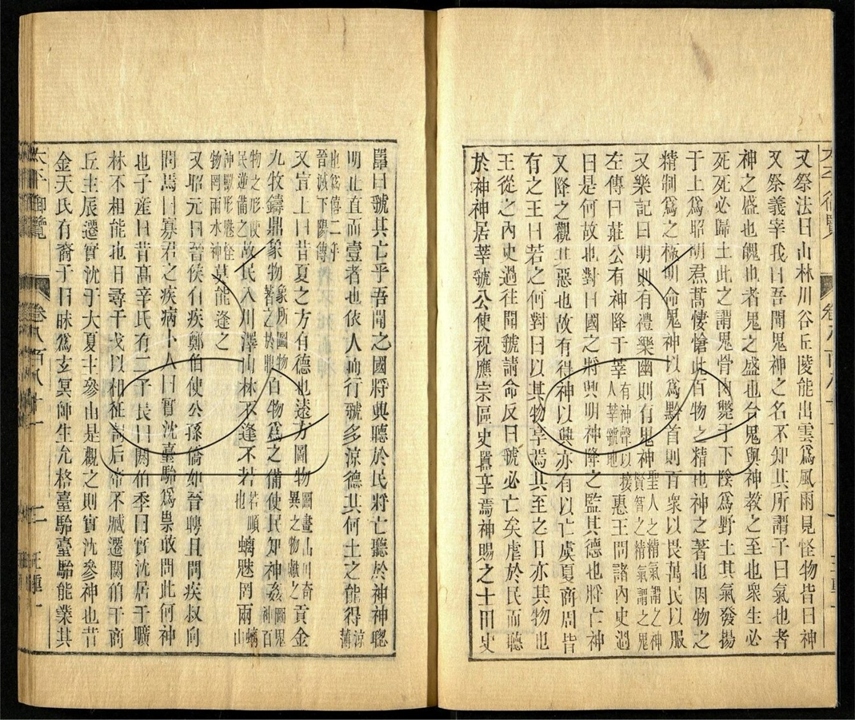 又祭法曰山林川谷丘陵能出雲爲風雨見怪物皆曰神
又祭義宰我曰吾聞鬼神之名不知其所謂子曰氣也者
神之盛也魄也者鬼之盛也合鬼與神教之至也衆生必
死死必歸土此之謂鬼骨肉斃于下陰爲野土其氣發揚
于上爲昭明焄蒿悽愴此百物之精也神之著也因物之
精制爲之極明命鬼神以爲黔首則百衆以畏萬民以服
又樂記曰明則有禮樂幽則有鬼神聖人之精氣謂之神賢智之精氣謂之鬼
左傳曰莊公有神降于莘有神聲以接人莘虢地惠王問諸內史過
曰是何故也對曰國之將興明神降之監其德也將亡神
又降之觀其惡也故有得神以興亦有以亡虞夏商周皆
有之王曰若之何對曰以其物享焉其至之日亦其物也
王從之內史過往聞虢請命反曰虢必亡矣虐於民而聽
於神神居莘虢公使祝應宗區史嚚享焉神賜之土田史
嚚曰虢其亡乎吾聞之國將興聽於民將亡聽於神神聰
明正直而壹者也依人而行虢多涼德其何土之能得涼薄
也爲僖二年晉滅下陽傳
又宣上曰昔夏之方有德也遠方圖物圖畫山川奇異之物獻之貢金
九牧鑄鼎象物象所圖物著之於鼎百物爲之備使民知神姦圖鬼神百
物之形使民逆備之故民入川澤山林不逢不若若順也螭魅罔兩螭山
神獸形魅怪物罔兩水神莫能逢之
又昭元曰晉侯有疾鄭伯使公孫僑如晉聘且問疾叔向
問焉曰寡君之疾病卜人曰實沈臺駘爲祟敢問此何神
也子產曰昔高辛氏有二子長曰閼伯季曰實沈居于曠
林不相能也日尋干戈以相征討后帝不臧遷閼伯于商
丘主辰遷實沈于大夏主參由是觀之則實沈參神也昔
金天氏有裔子曰昧爲玄冥師生允格臺駘臺駘能業其